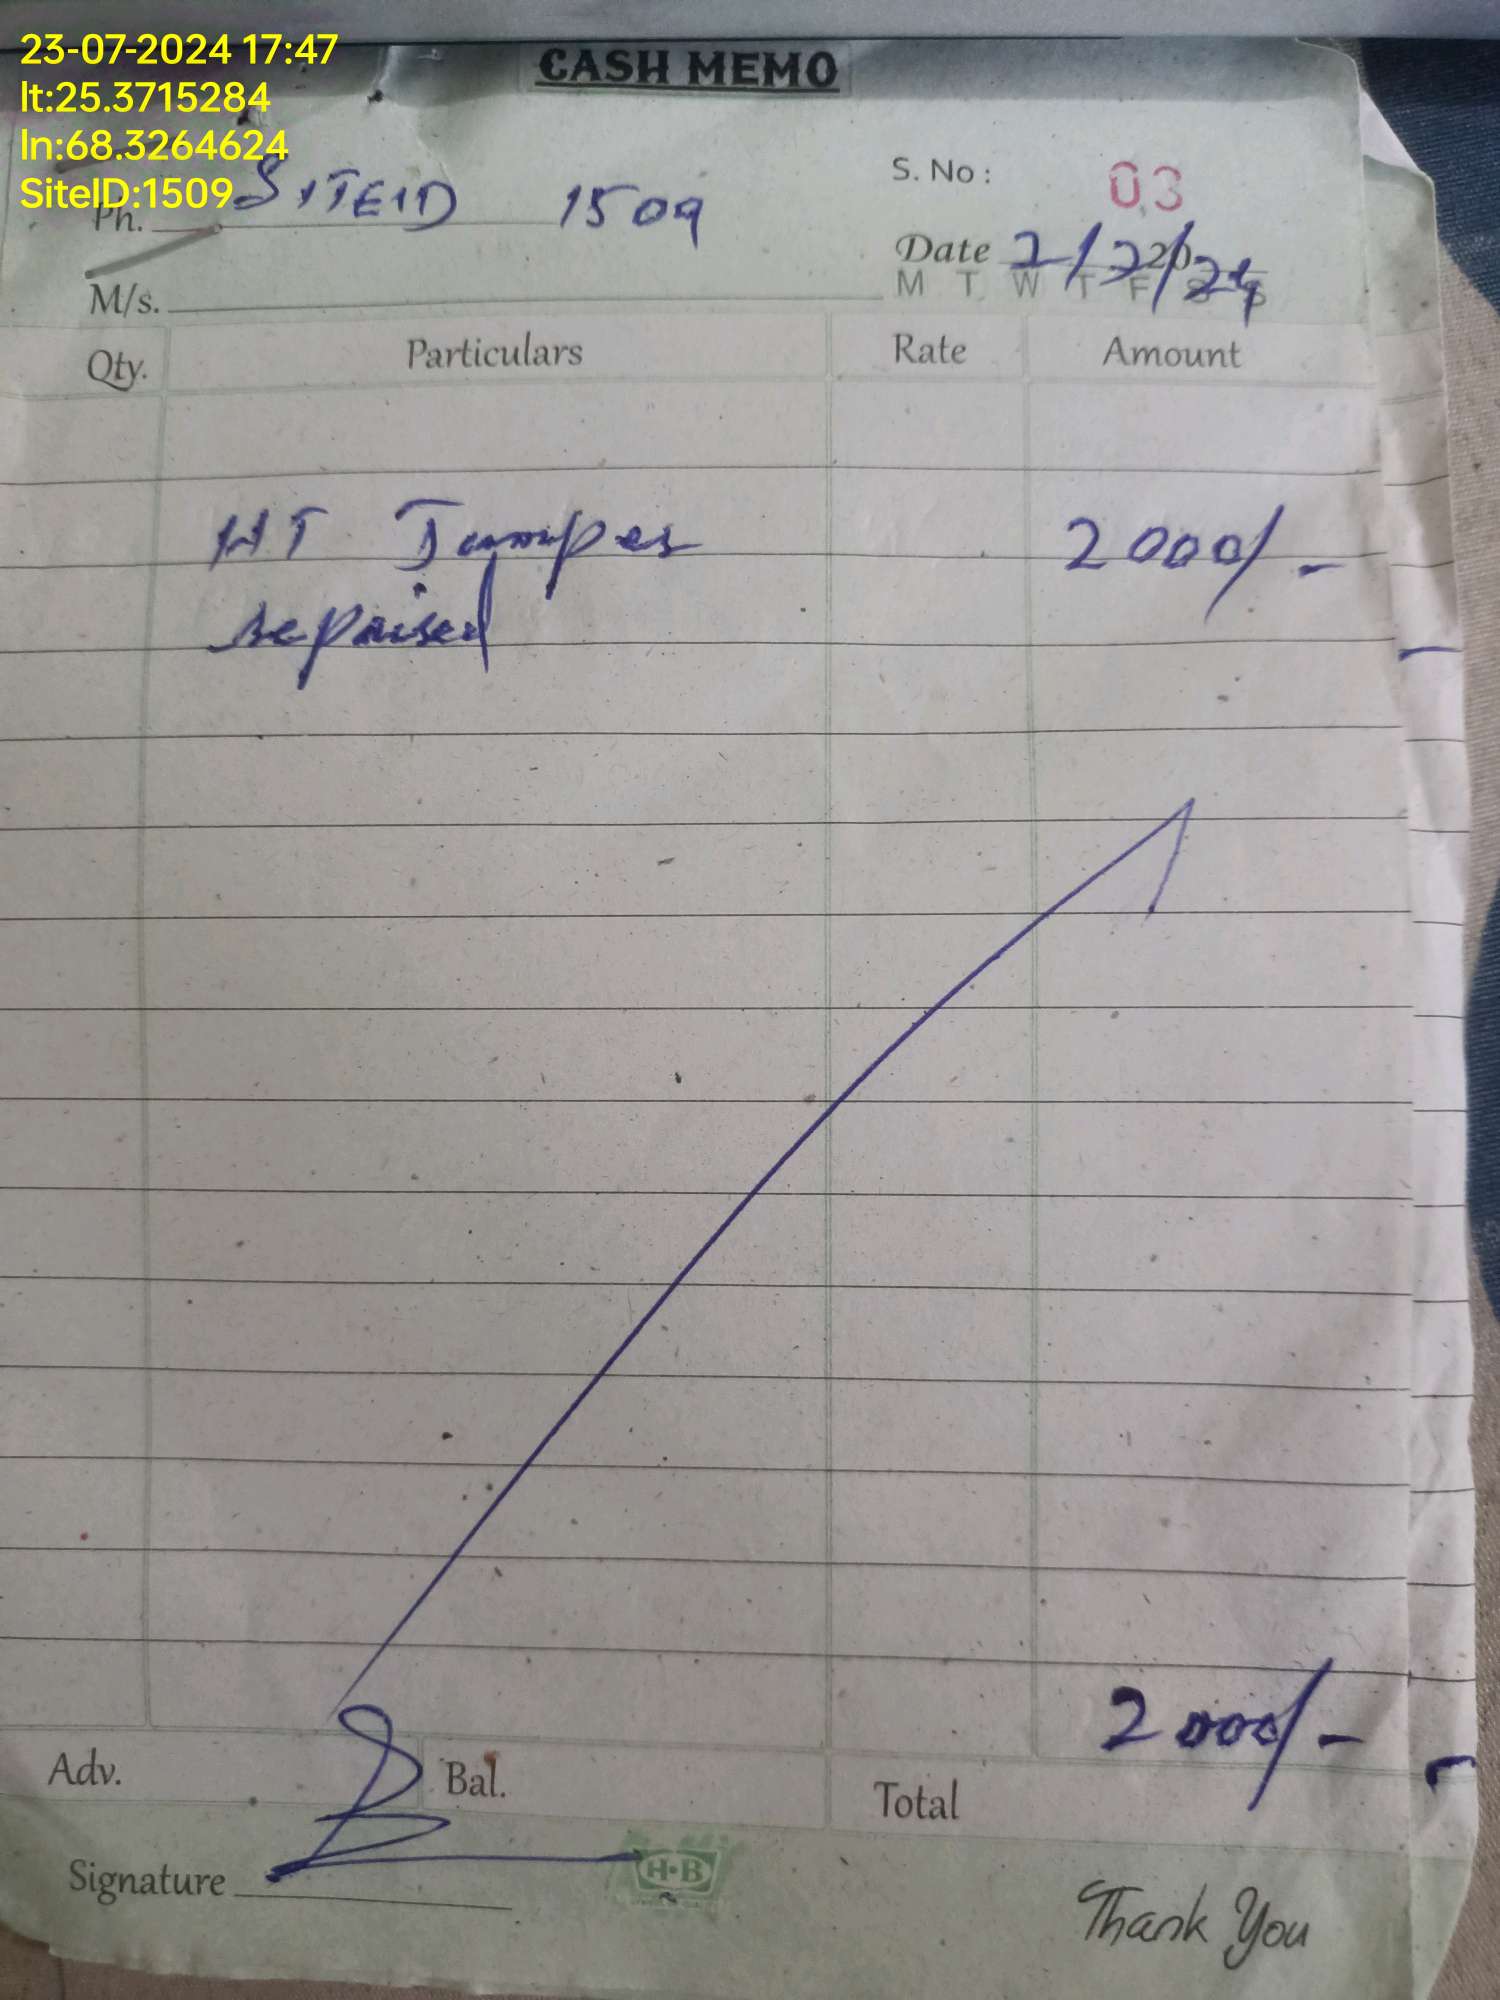 23-07-2024 17:47
lt:25.3715284
ln:68.3264624
SiteID:1509
CASH MEMO
S. No : 03
Ph. SITEID 1509
Date 2/7/2024
M T W T F S S
M/s.
Qty. Particulars Rate Amount
HT Jumper 2000/-
repaired
2000/-
Adv. Bal. Total
Signature
H·B
Thank You